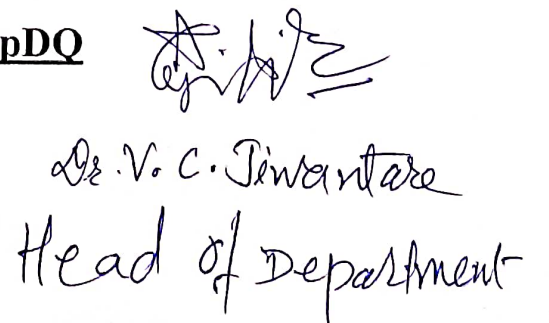 pDQ
Dr. V. C. Jiwantare
Head of Department